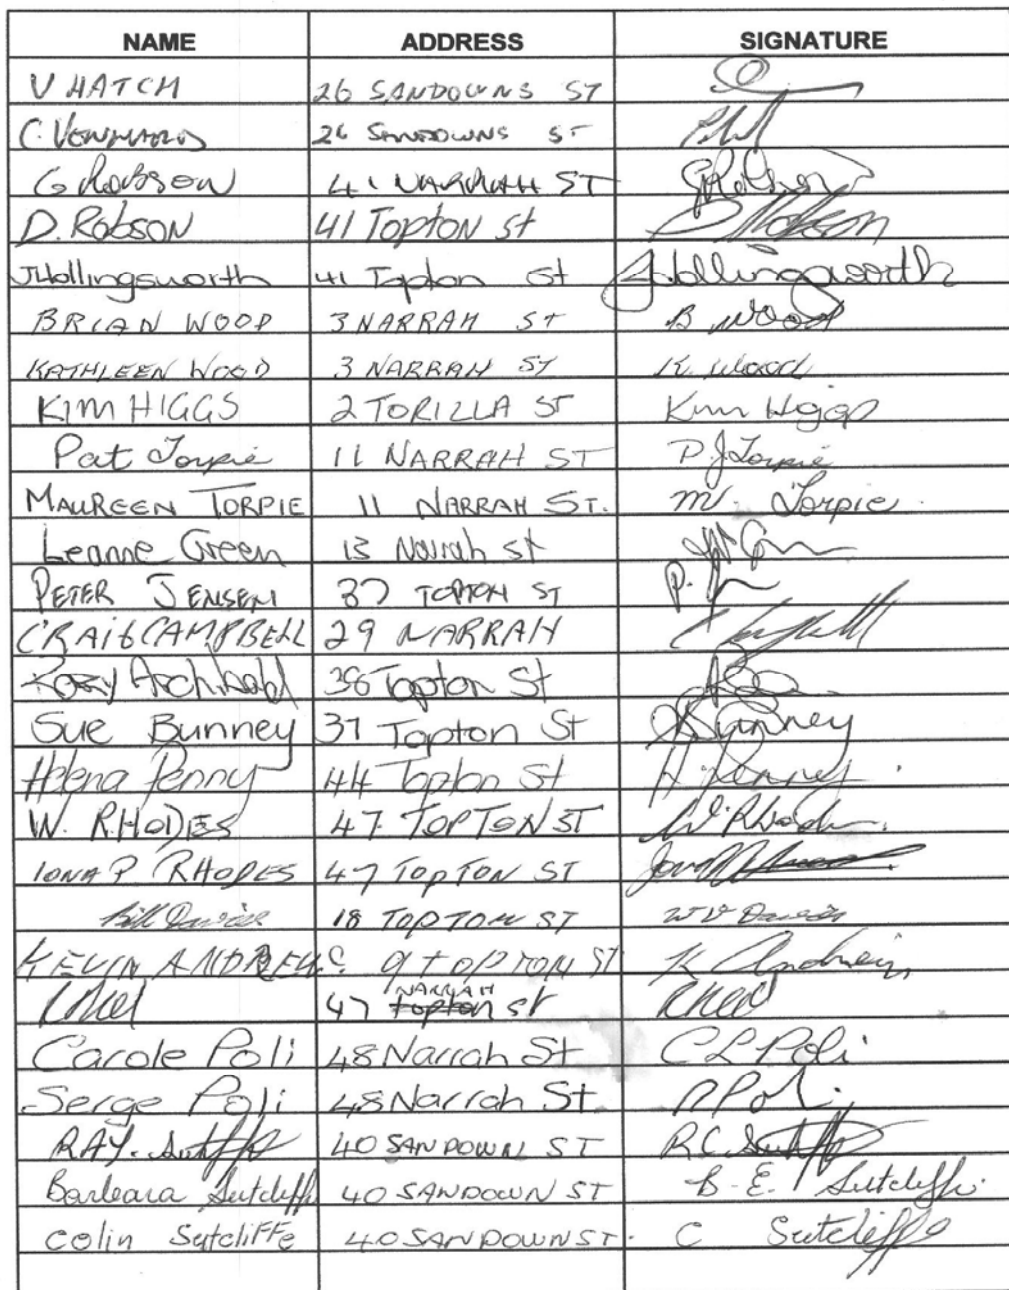 NAME ADDRESS SIGNATURE
V HATCH 26 SANDOWNS ST
C. 26 SANDOWNS ST
G Robson 41 NARRAH ST G Robson
D. Robson 41 Topton St D Robson
J Hollingsworth 41 Topton St J Hollingsworth
BRIAN WOOD 3 NARRAH ST B Wood
KATHLEEN WOOD 3 NARRAH ST K. Wood
KIM HIGGS 2 TORILLA ST Kim Higgs
Pat Torpie 11 NARRAH ST P. J Torpie
MAUREEN TORPIE 11 NARRAH ST. M. Torpie
Leanne Green 13 Narrah St
PETER JENSEN 37 TOPTON ST P.
CRAIG CAMPBELL 29 NARRAH C Campbell
Archibald 38 Topton St
Sue Bunney 37 Topton St S Bunney
Helena Penny 44 Topton St H Penney
W. RHODES 47 TOPTON ST W. Rhodes
IONA P RHODES 47 TOPTON ST
Bill Davies 18 TOPTON ST W V Davies
KEVIN ANDREWS 9 TOPTON ST K Andrews
NARRAH
47 Topton St
Carole Poli 48 Narrah St C L Poli
Serge Poli 48 Narrah St. Poli
RAY. Sutcliffe 40 SANDOWN ST R.C. Sutcliffe
Barbara Sutcliffe 40 SANDOWN ST B. E. Sutcliffe
Colin Sutcliffe 40 SANDOWN ST. C Sutcliffe